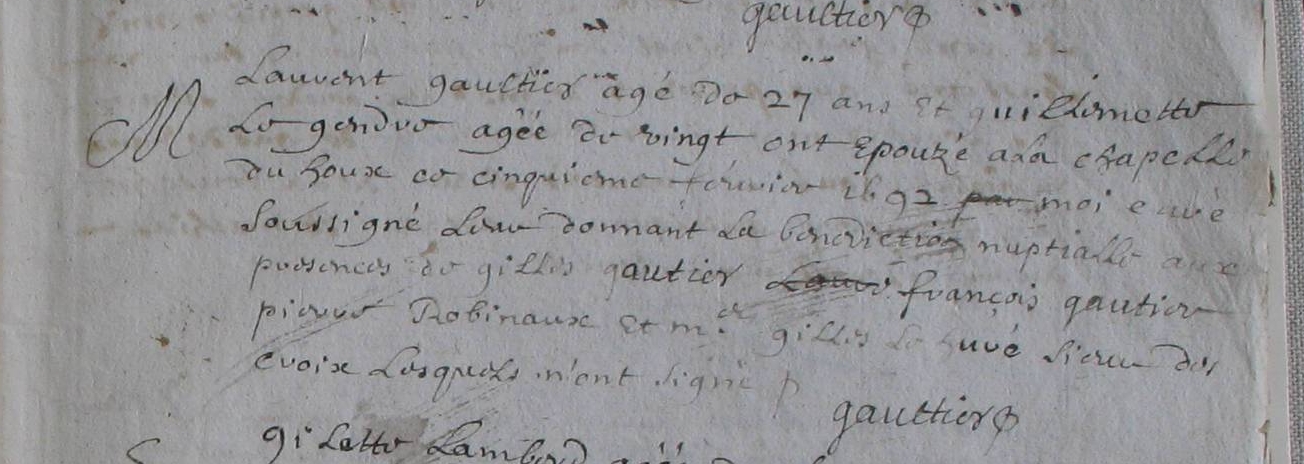 gaultier
M
Laurent gaultier agé de 27 ans Et guillemette
Le gendre agéé de vingt ont Epouzé a la chapelle
du houx ce cinquieme fevrier 1692 par moi
soussigné Leur donnant La benediction nuptialle aux
presences de gilles gautier Laure françois gautier
pierre Robinaux Et m.e gilles Le huré sieur des
croix Lesquels n'ont signé
gaultier
giLette Lambert